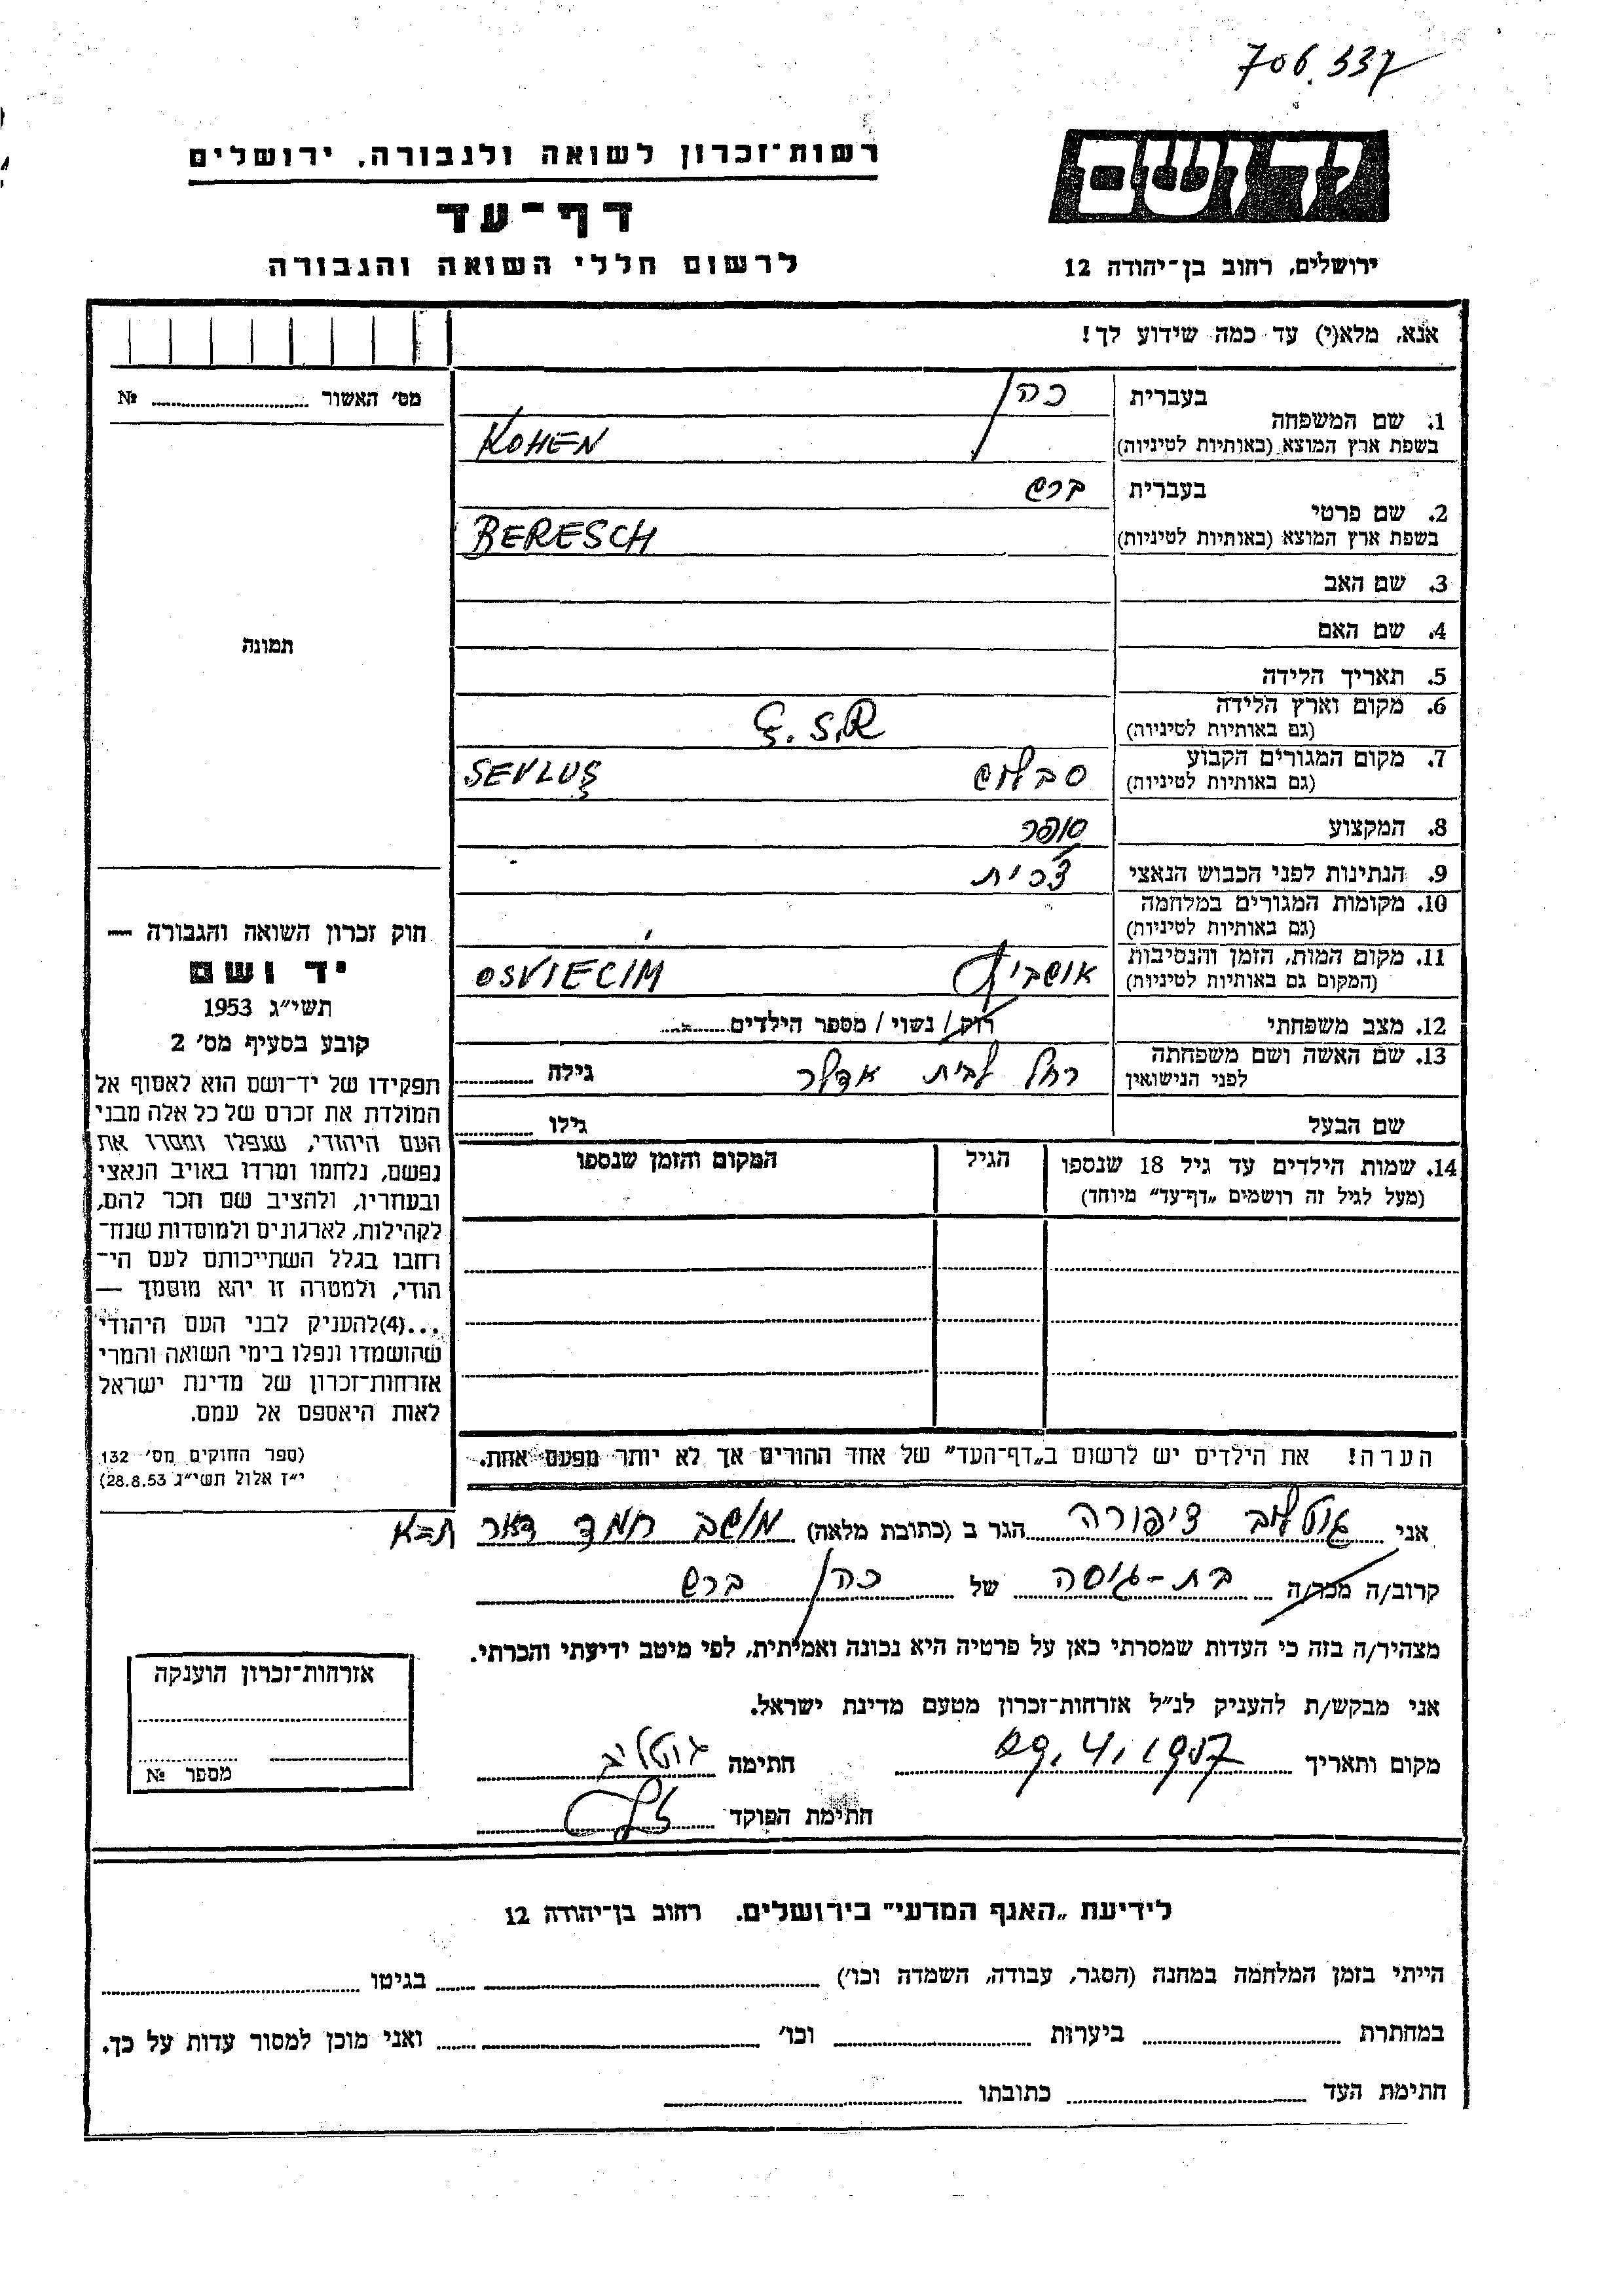 706.337
רשות־זכרון לשואה ולגבורה, ירושלים
דף־עד
לרשום חללי השואה והגבורה
יד ושם
ירושלים, רחוב בן־יהודה 12
אנא, מלא(י) עד כמה שידוע לך!
מס׳ האשור ............ №
תמונה
1. שם המשפחה
בעברית כהן
בשפת ארץ המוצא (באותיות לטיניות) KOHEN
2. שם פרטי
בעברית ברש
בשפת ארץ המוצא (באותיות לטיניות) BERESCH
3. שם האב
4. שם האם
5. תאריך הלידה
6. מקום וארץ הלידה
(גם באותיות לטיניות) Č.S.R
7. מקום המגורים הקבוע סבלוש SEVLUŞ
(גם באותיות לטיניות)
8. המקצוע סופר
9. הנתינות לפני הכבוש הנאצי צ'כית
10. מקומות המגורים במלחמה
(גם באותיות לטיניות)
11. מקום המות, הזמן והנסיבות אושביץ OSVIECIM
(המקום גם באותיות לטיניות)
12. מצב משפחתי רווק / נשוי / מספר הילדים
13. שם האשה ושם משפחתה רחל לבית אדלר גילה
לפני הנישואין
שם הבעל גילו
14. שמות הילדים עד גיל 18 שנספו הגיל המקום והזמן שנספו
(מעל לגיל זה רושמים „דף־עד״ מיוחד)
הערה! את הילדים יש לרשום ב„דף־העד״ של אחד ההורים אך לא יותר מפעם אחת.
חוק זכרון השואה והגבורה —
יד ושם
תשי״ג 1953
קובע בסעיף מס׳ 2
תפקידו של יד־ושם הוא לאסוף אל
המולדת את זכרם של כל אלה מבני
העם היהודי, שנפלו ומסרו את
נפשם, נלחמו ומרדו באויב הנאצי
ובעוזריו, ולהציב שם וזכר להם,
לקהילות, לארגונים ולמוסדות שנח־
רחבו בגלל השתייכותם לעם הי־
הודי, ולמטרה זו יהא מוסמך —
...(4) להעניק לבני העם היהודי
שהושמדו ונפלו בימי השואה והמרי
אזרחות־זכרון של מדינת ישראל
לאות היאספם אל עמם.
(ספר החוקים מס׳ 132
י״ז אלול תשי״ג 28.8.53)
אני גוטליב ציפורה הגר ב (כתובת מלאה) מושב חמד דאר ת-א
קרוב/ה מכר/ה בת-גיסה של כהן ברש
מצהיר/ה בזה כי העדות שמסרתי כאן על פרטיה היא נכונה ואמיתית, לפי מיטב ידיעתי והכרתי.
אני מבקש/ת להעניק לנ״ל אזרחות־זכרון מטעם מדינת ישראל.
מקום ותאריך 09.4.1957 חתימה גוטליב
חתימת הפוקד
אזרחות־זכרון הוענקה
מספר №
לידיעת „האגף המדעי״ בירושלים. רחוב בן־יהודה 12
הייתי בזמן המלחמה במחנה (הסגר, עבודה, השמדה וכו׳) בגיטו
במחתרת ביערות וכו׳ ואני מוכן למסור עדות על כך.
חתימת העד כתובתו